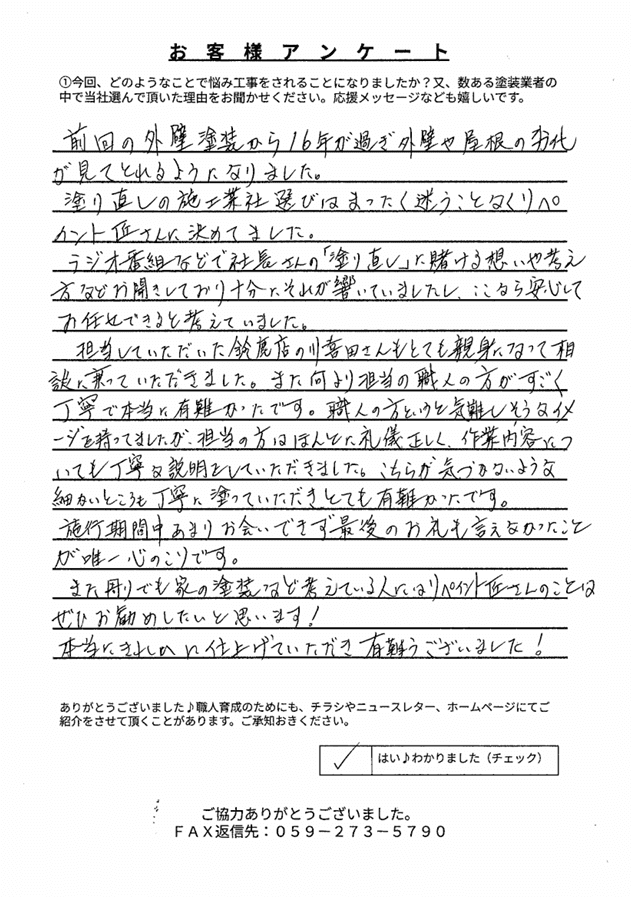 お客様アンケート
①今回、どのようなことで悩み工事をされることになりましたか？又、数ある塗装業者の
中で当社選んで頂いた理由をお聞かせください。応援メッセージなども嬉しいです。
前回の外壁塗装から16年が過ぎ外壁や屋根の劣化
が見てとれるようになりました。
塗り直しの施工業社選びはまったく迷うことなくリペ
イント匠さんに決めてました。
ラジオ番組などで社長さんの「塗り直し」に賭ける想いや考え
方などお聞きしており十分にそれが響いていましたし、ここなら安心して
お任せできると考えていました。
担当していただいた鈴鹿店の川喜田さんもとても親身になって相
談に乗っていただきました。また何より担当の職人の方がすごく
丁寧で本当に有難かったです。職人の方というと気難しそうなイメ
ージを持ってましたが、担当の方はほんとに礼儀正しく、作業内容につ
いても丁寧な説明をしていただきました。こちらが気づかないような
細かいところも丁寧に塗っていただきとても有難かったです。
施行期間中あまりお会いできず最後のお礼も言えなかったこと
が唯一心のこりです。
また周りでも家の塗装など考えている人にはリペイント匠さんのことは
ぜひお勧めしたいと思います!
本当にきれいに仕上げていただき有難うございました!
ありがとうございました♪職人育成のためにも、チラシやニュースレター、ホームページにてご
紹介をさせて頂くことがあります。ご承知おきください。
✓ はい♪わかりました（チェック）
ご協力ありがとうございました。
FAX返信先：059－273－5790